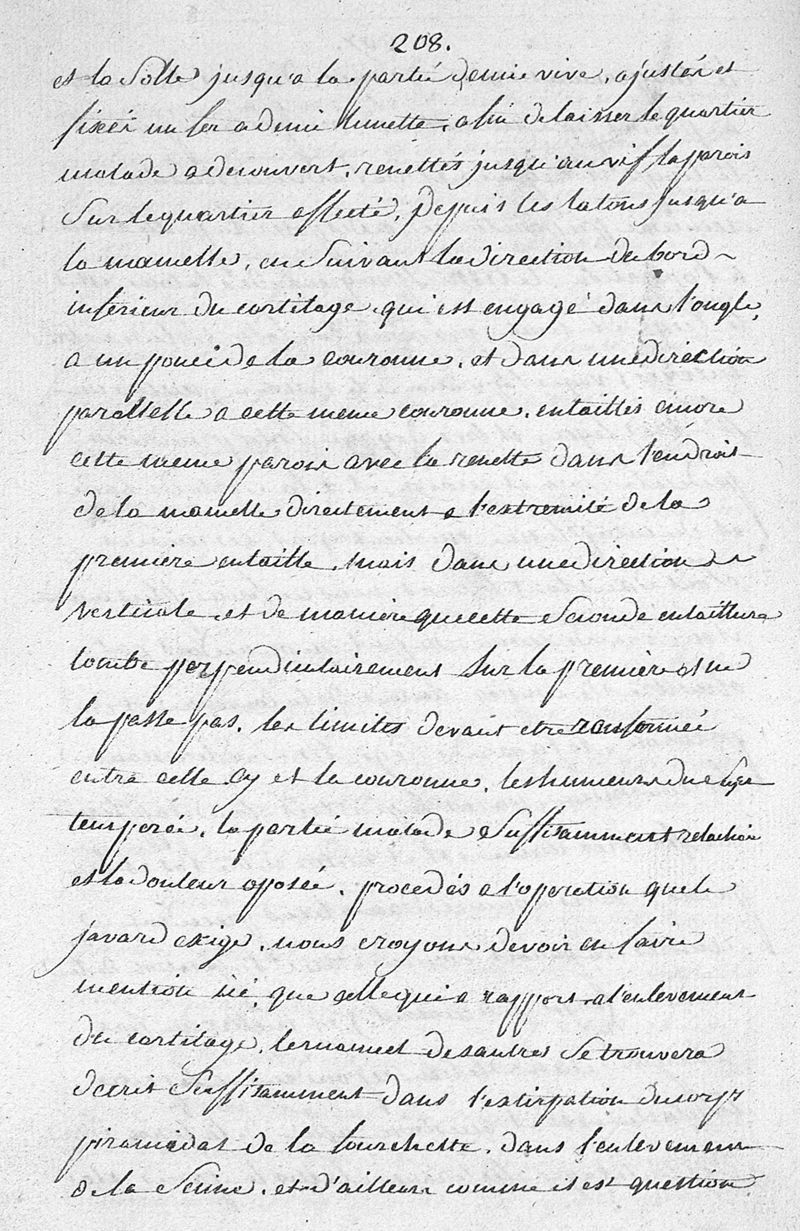 208.
et la solle jusqu'a la partie demie vive, ajustés et
fixés un fer a demi lunette, afin de laisser le quartier
malade a decouvert, renettés jusqu'au vif la parois
sur le quartier affecté, depuis les talons jusqu'a
la mamelle, en suivant la direction du bord
inferieur du cartilage qui est engagé dans l'ongle,
a un pouce de la couronne, et dans une direction
parallelle a cette meme couronne, entaillés encore
cette meme parois avec la renette dans l'endroit
de la mamelle directement a l'extremité de la
premiere entaille, mais dans une direction
verticale, et de maniere que cette seconde entaillure
tombe perpendiculairement sur la premiere et ne
la passe pas, les limites devant etre renfermée
entre celle cy et la couronne, les humeurs du sujet
temporée, la partie malade suffisamment relachée
et la douleur aposée, procedés a l'operation que le
javard exige, nous croyons devoir en faire
mention ici, que celle qui a rapport a l'enlevement
du cartilage, le manuel des autres se trouvera
decrit suffisamment dans l'extirpation du corps
piramidal de la fourchette, dans l'enlevement
de la seime, et d'ailleurs comme il est question